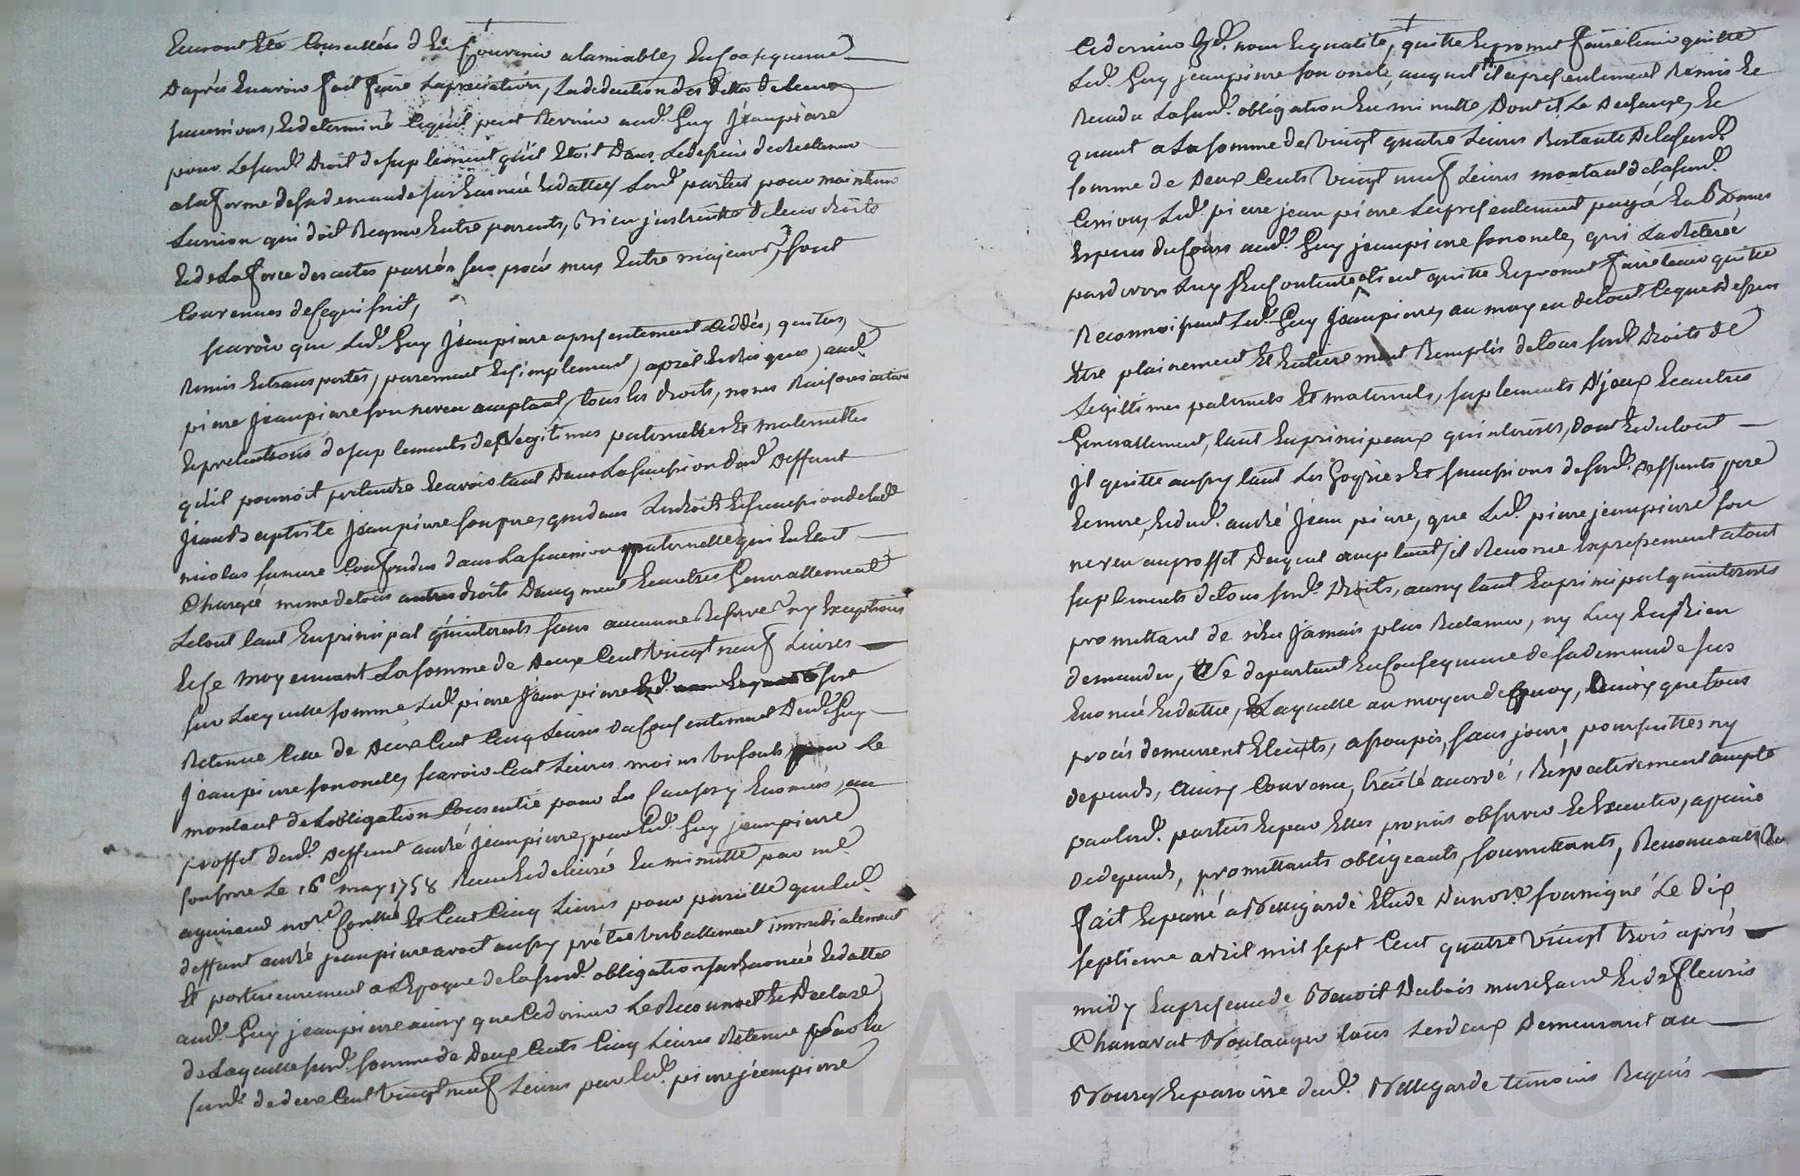 auront Eté Conseillés d'En Convenir alamiable, En Consequence
D'après En avoir fait faire Lapreciation, La deduction des Dettes de leurs
successions, Et determiné Ce qu'il peut Revenir aud. Guy Jeanpierre
pour Lesusd. Droit de suplement qu'il Etoit Dans Le dessein de Reclamer
a la forme de sa demande sus Enoncée Et dattée, Lesd. parties pour maintenir
L'union qui doit Regner Entre parents, Bien instruittes de leurs droits
Et de La force des actes passés sur procés mus Entre majeurs, sont
Convenues de Ce qui suit,
scavoir que Led. Guy Jeanpierre a presentement Ceddés, quittes,
Remis Et transportés, purement Et simplement, a peril Et risques, aud.
pierre Jeanpierre son neveu acceptant, tous les droits, noms Raisons actions
Et pretentions de suplements de Legitimes paternelles Et maternelles
qu'il pouvoit pretendre Et avoir tant Dans La succession dud. Deffunt
Jean Baptiste Jeanpierre son pere, que dans Les droits Et succession de lad.
nicolas sa mere Confondus dans La succession paternelle qui En Etoit
Chargée même de tous autres droits Daugment Et autres Generallement
Le tout tant En principal qu'interests sans aucune Reserve ny Exceptions
Et Ce moyennant La somme de Deux Cent Vingt neuf Livres
sur Laquelle somme, Led. pierre Jean pierre sera
Retenue Celle de Deux Cent Cinq Livres du Consentement Dud. Guy
Jeanpierre son oncle, scavoir Cent Livres moins Le
montant de L'obligation Consentie pour Les Causes y Enoncés, au
proffit dud. Deffunt andré Jeanpierre, par Led. Guy Jeanpierre
son frere Le 16e may 1758 Recue Et delivré En minutte par me.
not.re Et Cent Cinq Livres pour pareille que led.
deffunt andré Jeanpierre avoit aussy prétée Verballement immediatement
Et posterieurement a L'Epoque de la susd. obligation sus Enoncée Et dattée
aud. Guy jeanpierre ainsy que Ce dernier Le Reconnoit Et Declare,
de Laquelle susd. somme de Deux Cents Cinq Livres Retenue sur La
susd. de deux Cent Vingt neuf Livres par led. pierre jeanpierre
Ce dernier Esd. nom Et qualité, quitte Et promet faire tenir quitte
Led. Guy jeanpierre son oncle, auquel il a presentement Remis Et
Rendu La susd. obligation En minutte, Dont il Le Decharge, Et
quant a La somme de Vingt quatre Livres Restante De la susd.
somme de Deux Cents Vingt neuf Livres montant de la susd.
Cession, Led. pierre jean pierre L'a presentement payé En Bonnes
Especes du Cours aud. Guy jeanpierre son oncle, qui L'a Retirée
pardevers Luy s'En Contente Et tient quitte Et promet faire tenir quitte
Reconnoissant Led. Guy Jeanpierre, au moyen de tout Ce que dessus
Etre plainement Et Entierement Remplis de tous susd. Droits de
Legittimes paternels Et maternels, suplements D'jceux Et autres
Generallement, tant En principaux qu'interests, dont Et du tout
Jl quitte aussy tant Les hoyries Et successions desusd. Deffunts pere
Et mere, Et dud. andré Jean pierre, que Led. pierre jeanpierre son
neveu au proffit Duquel acceptant, il Renonce Expressement a tout
suplements de tous susd. Droits, aussy tant En principal qu'interests
promettant de n'En Jamais plus Reclamer, ny Luy En Rien
demander, se departant En Consequence de sa demande sus
Enoncée Et dattée, Laquelle au moyen de quoy, Ainsy que tous
procés demeurent Eteints, assoupis, sans jours, poursuittes ny
depends, Ainsy Convenu, traité accordé, Respectivement accepté
par lesd. parties Et par Elles promis observer Et Executer, a peine
De depends, promettants obligeants, soumettants, Renonceants
fait Et passé a Bellegarde Etude Du not.re soussigné Le Dix
septieme avril mil sept Cent quatre Vingt trois aprés
midy En presence de Benoit Dubois marchand Et de fleuris
Chanavat Boulanger tous Les deux Demeurant au
Bourg Et paroisse dud. Bellegarde temoins Requis
CHARETRON